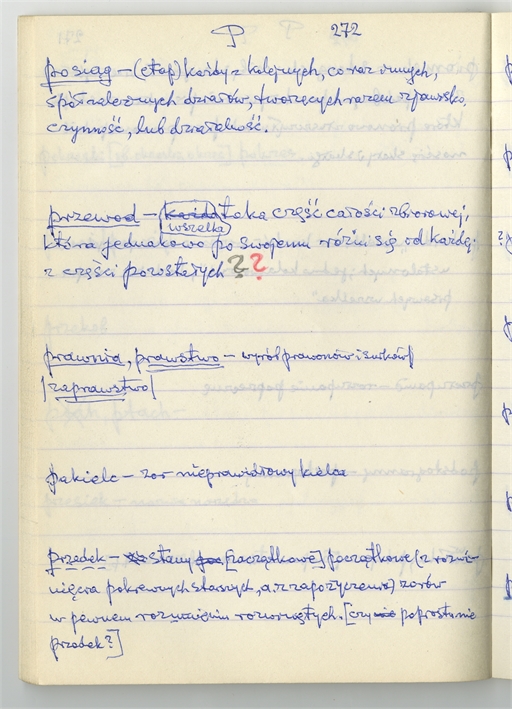 P 272
posiąg – (etap) każdy z kolejnych, coraz innych,
spółzależnych działów, tworzących razem zjawisko,
czynność, lub działalność.
przewod – każda taka część całości zbiorowej,
wszelka
która jednakowo po swojemu różni się od każdej
z części pozostałych ? ?
prawnia, prawstwo – wyrób prawonów i
|zaprawstwo|
pakielc – zar nieprawidłowy kielca
przedek – stany [zaczątkowe] początkowe (z rozwi-
nięcia pokrewnych starszych, a z zapożyczenia) zarów
w pewnem rozumieniu rozwiązłych. [czy nie poprostu nie
przodek?]